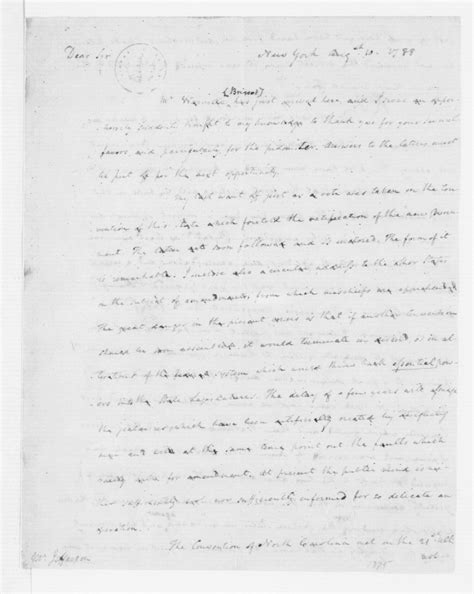 Dear Sir New York Aug. 10. 1788
[Brissot]
Mr. Warville has just arrived here, and I seize an oppor-
tunity suddenly brought to my knowledge to thank you for your several
favors, and particularly for the pedometer. Answers to the letters must
be put off for the next opportunity.
My last went off just as a vote was taken in the Con-
vention of this State which foretold the ratification of the new Govern-
ment. The latter act soon followed and is inclosed. The form of it
is remarkable. I inclose also a circular address to the other States
on the subject of amendments, from which mischiefs are apprehended.
The great danger in the present crisis is that if another Convention
should be soon assembled, it would terminate in discord, or in al-
terations of the federal system which would throw back essential pow-
ers into the State Legislatures. The delay of a few years will assuage
the jealousies which have been artificially created by designing
men and will at the same time point out the faults which
really call for amendment. At present the public mind is nei-
ther cool nor sufficiently informed for so delicate an
operation.
The Convention of North Carolina met on the 21st Ult:
Mr. Jefferson not